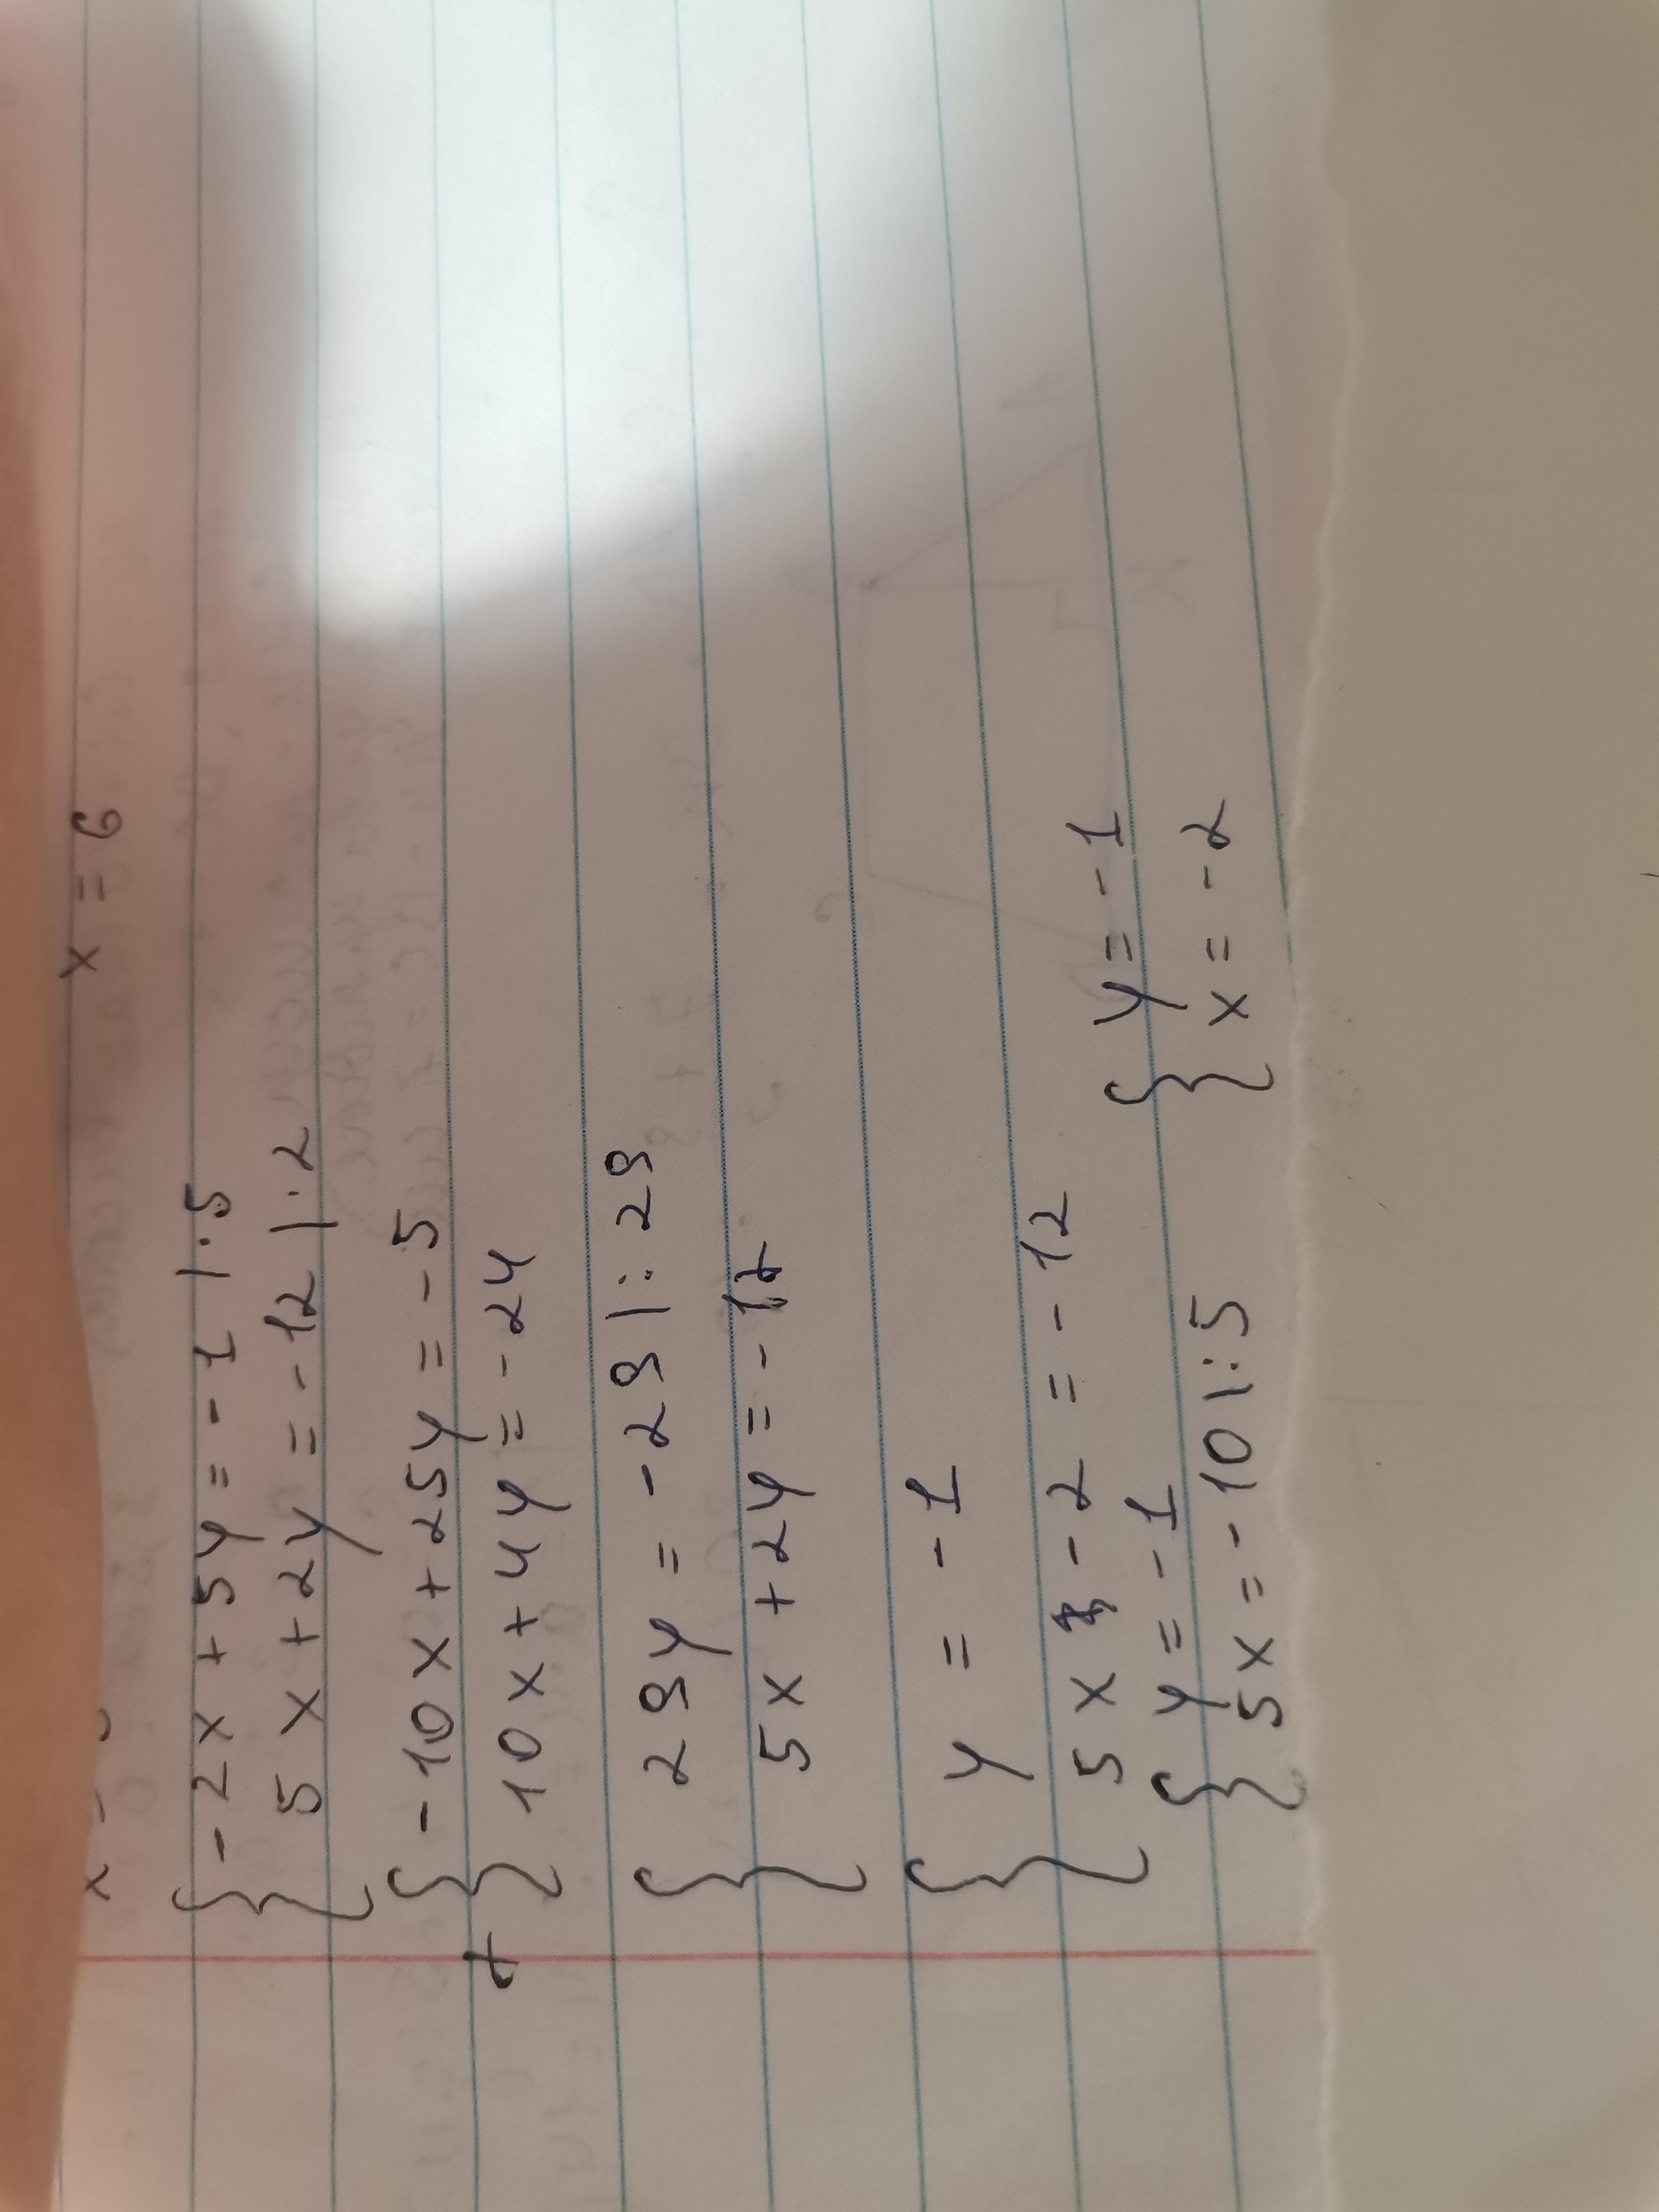 x = 6
{ -2x + 5y = -1 |·5
5x + 2y = -12 |·2
{ -10x + 25y = -5
+ 10x + 4y = -24
{ 29y = -29 |:29
5x + 2y = -12
{ y = -1
5x - 2 = -12
{ y = -1
5x = -10 |:5
{ y = -1
x = -2